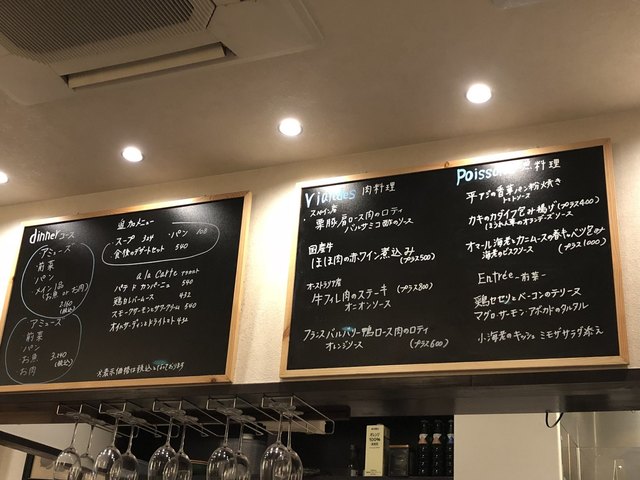 dinnerコース
アミューズ
前菜
パン
メイン1品
(お魚 or お肉)
2160
(税込)
アミューズ
前菜
パン
お魚
お肉
3240
(税込)
追加メニュー
・スープ 324 ・パン 108
・食後のデザートセット 540
a la Carte アラカルト
パテ ド カンパーニュ 540
鶏白レバームース 432
スモークサーモンとサワークリーム 540
オイルサーディンとドライトマト 432
※表示価格は税込と
Viandes 肉料理
・スペイン産
栗豚肩ロース肉のロティ
バルサミコ酢のソース
国産牛
ほほ肉の赤ワイン煮込み
(プラス500)
オーストラリア産
牛フィレ肉のステーキ (プラス800)
オニオンソース
フランスバルバリー鴨ロース肉のロティ
オレンジソース (プラス600)
料理
平アジの香草パン粉焼き
トマトソース
カキのカダイフ包み揚げ (プラス400)
ほうれん草のオランデーズソース
オマール海老とカニムースの春キャベツ包み
海老のビスクソース (プラス1000)
Entrée 前菜
鶏セセリとベーコンのテリーヌ
マグロ・サーモン・アボカドのタルタル
小海老のキッシュ ミモザサラダ添え
100%